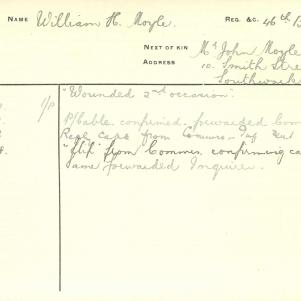 NAME William H. Moyle. REG. &C. 46th B
NEXT OF KIN Mr John Moyle
ADDRESS 10. Smith Stre
Southwark
1/p "Wounded 2nd occasion".
P/Cable. confirmed. forwarded Com
Reqd Cape from Commn.
"flik" from Commn. confirming ca
Same forwarded Inquirer.